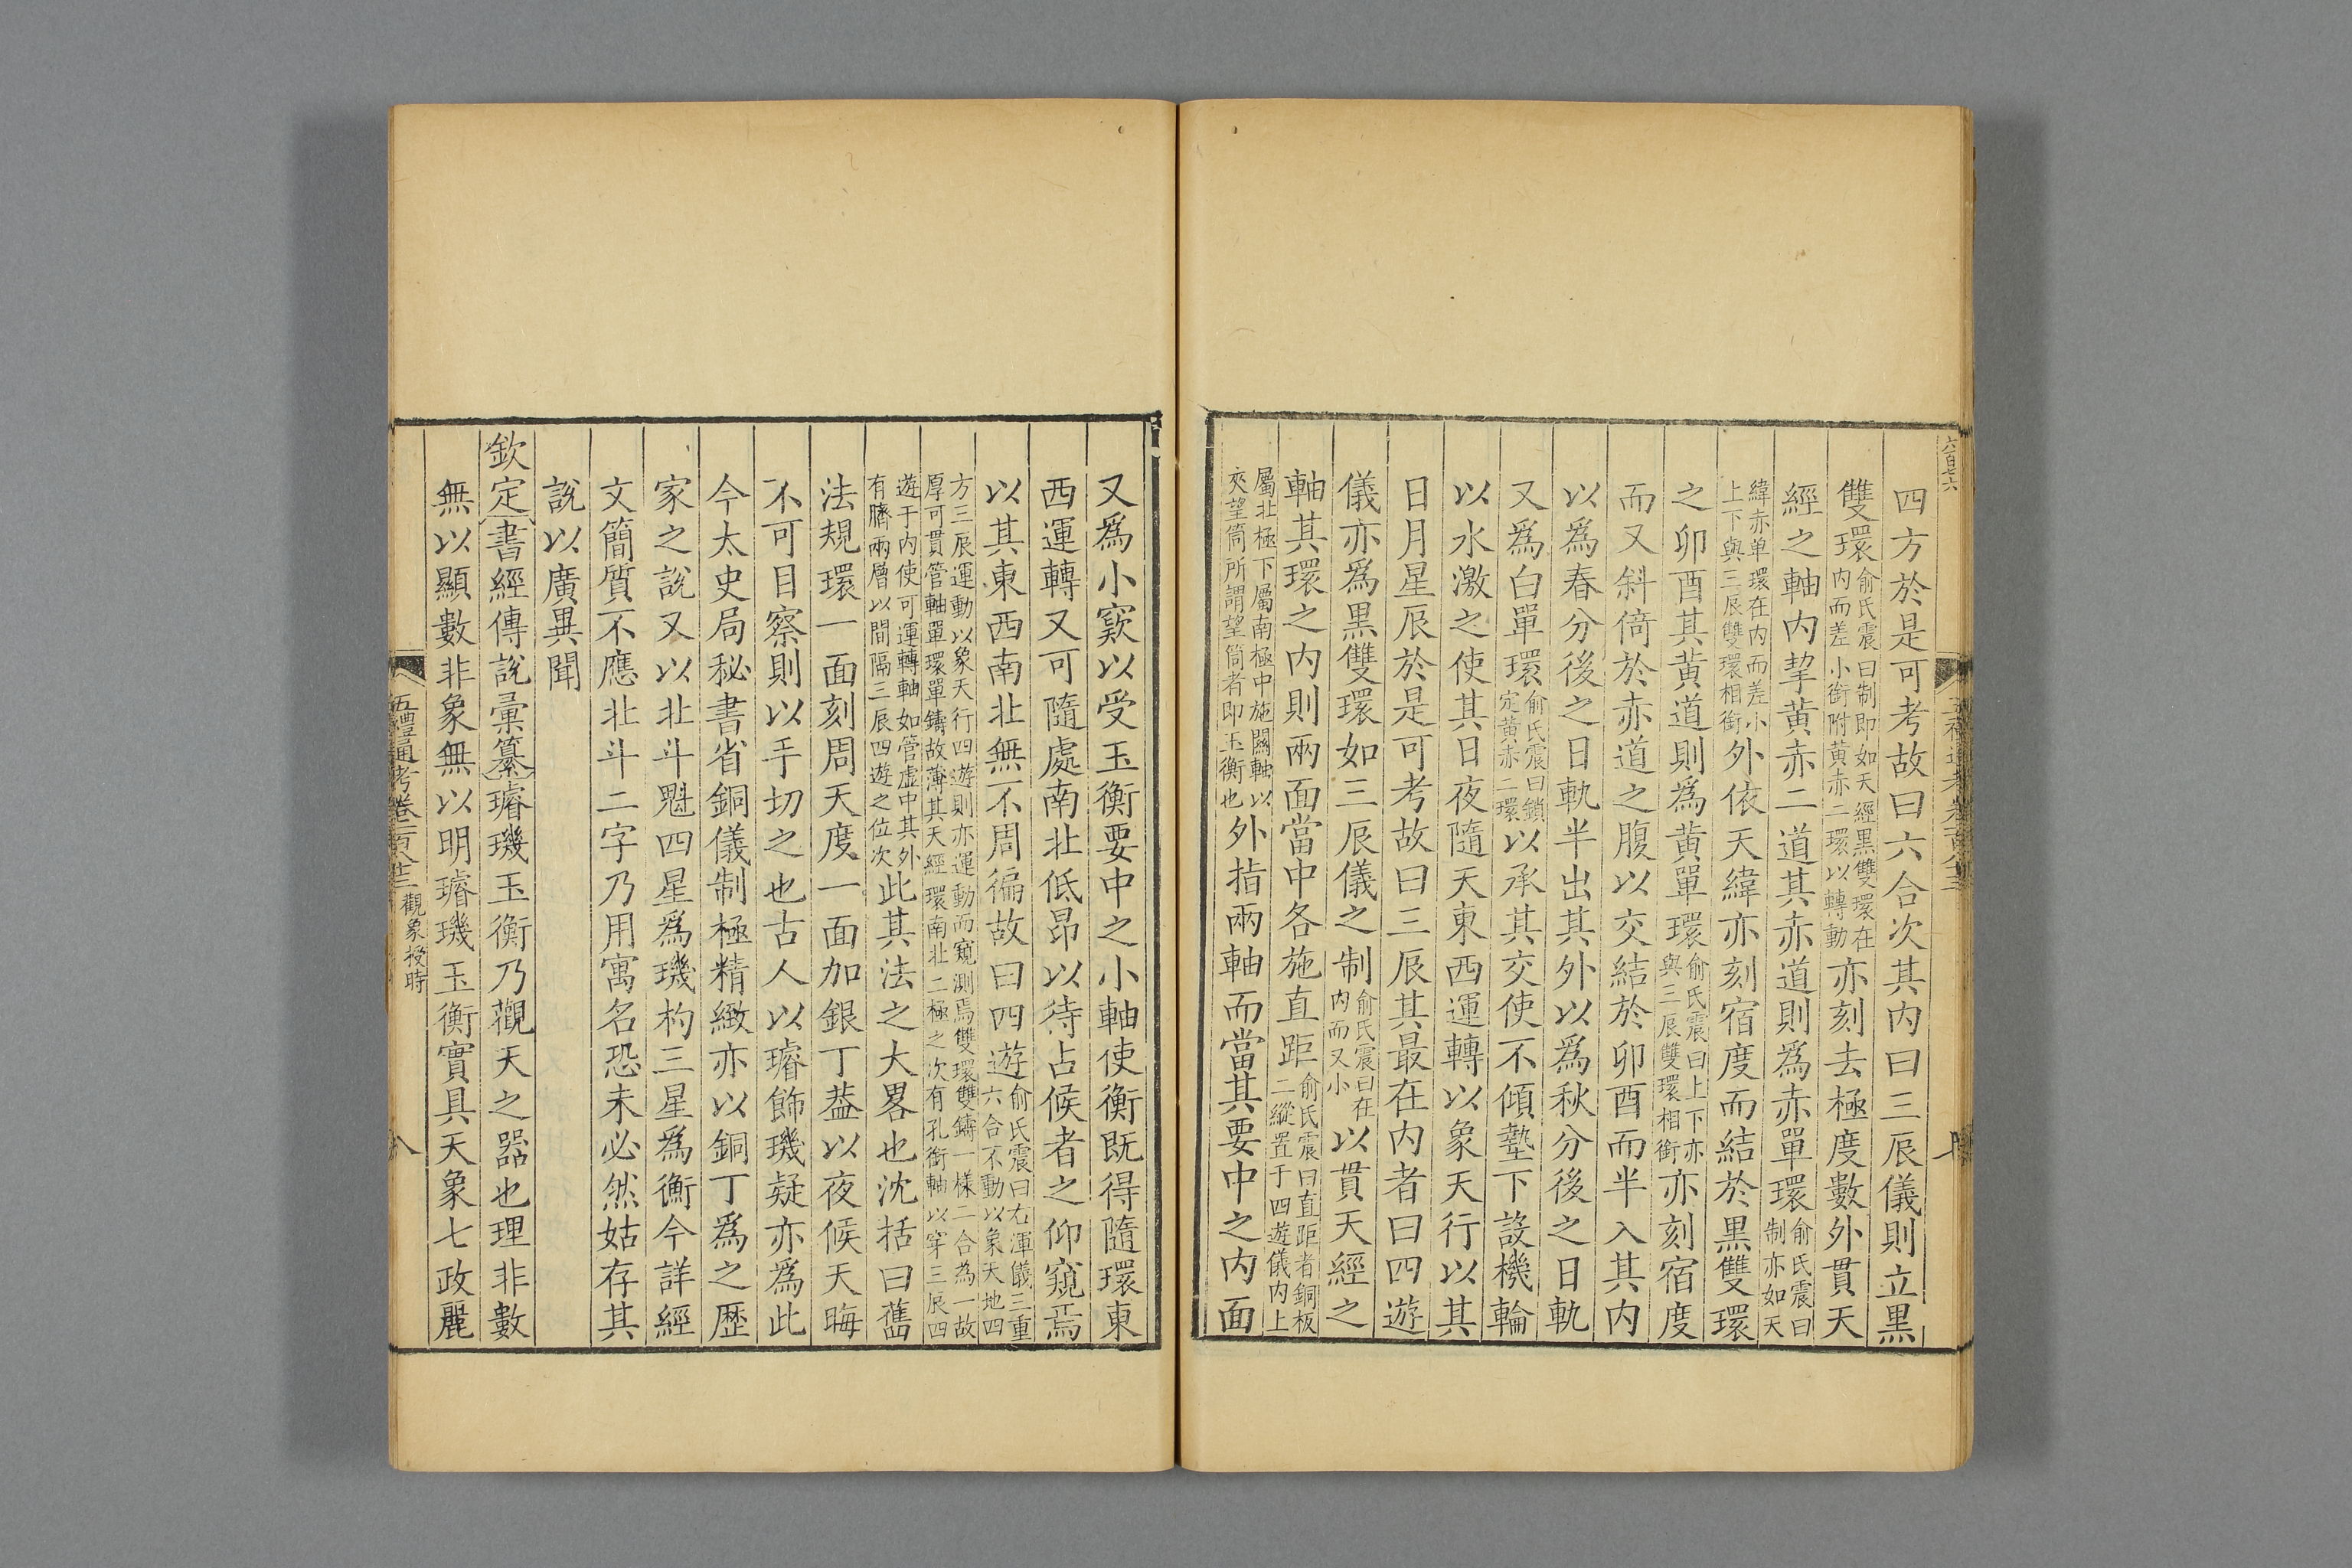 六百七六
四方於是可考故曰六合次其内曰三辰儀則立黒
雙環俞氏震曰制即如天經黒雙環在内而差小銜附黄赤二環以轉動亦刻去極度數外貫天
經之軸内挈黄赤二道其赤道則爲赤單環俞氏震曰制亦如天
緯赤单環在内而差小上下與三辰雙環相銜外依天緯亦刻宿度而結於黒雙環
之卯酉其黄道則爲黄單環俞氏震曰上下亦與三辰雙環相銜亦刻宿度
而又斜倚於赤道之腹以交結於卯酉而半入其内
以爲春分後之日軌半出其外以爲秋分後之日軌
又爲白單環俞氏震曰鎖定黄赤二環以承其交使不傾墊下設機輪
以水激之使其日夜隨天東西運轉以象天行以其
日月星辰於是可考故曰三辰其最在内者曰四遊
儀亦爲黒雙環如三辰儀之制俞氏震曰在内而又小以貫天經之
軸其環之内則兩面當中各施直距俞氏震曰直距者銅板二縱置于四遊儀内上
屬北極下屬南極中施關軸以夾望筒所謂望筒者即玉衡也外指兩軸而當其要中之内面
又爲小窽以受玉衡要中之小軸使衡既得隨環東
西運轉又可隨處南北低昂以待占候者之仰窺焉
以其東西南北無不周徧故曰四遊俞氏震曰右渾儀三重六合不動以象天地四
方三辰運動以象天行四遊則亦運動而窺測焉雙環雙鑄一樣二合為一故厚可貫管軸單環單鑄故薄其天經環南北二極之次有孔銜軸以穿三辰四
遊于内使可運轉軸如管虚中其外有臍兩層以間隔三辰四遊之位次此其法之大畧也沈括曰舊
法規環一面刻周天度一面加銀丁葢以夜候天晦
不可目察則以手切之也古人以璿飾璣疑亦爲此
今太史局秘書省銅儀制極精緻亦以銅丁爲之歴
家之說又以北斗魁四星爲璣杓三星爲衡今詳經
文簡質不應北斗二字乃用寓名恐未必然姑存其
說以廣異聞
欽定書經傳說彙纂璿璣玉衡乃觀天之器也理非數
無以顯數非象無以明璿璣玉衡實具天象七政麗
五禮通考卷一百八十三 觀象授時
八